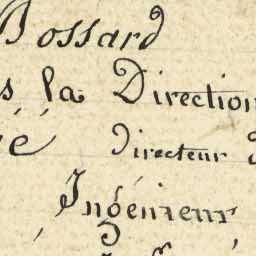 Bossard
s la Direction
é
Directeur
Ingénieur